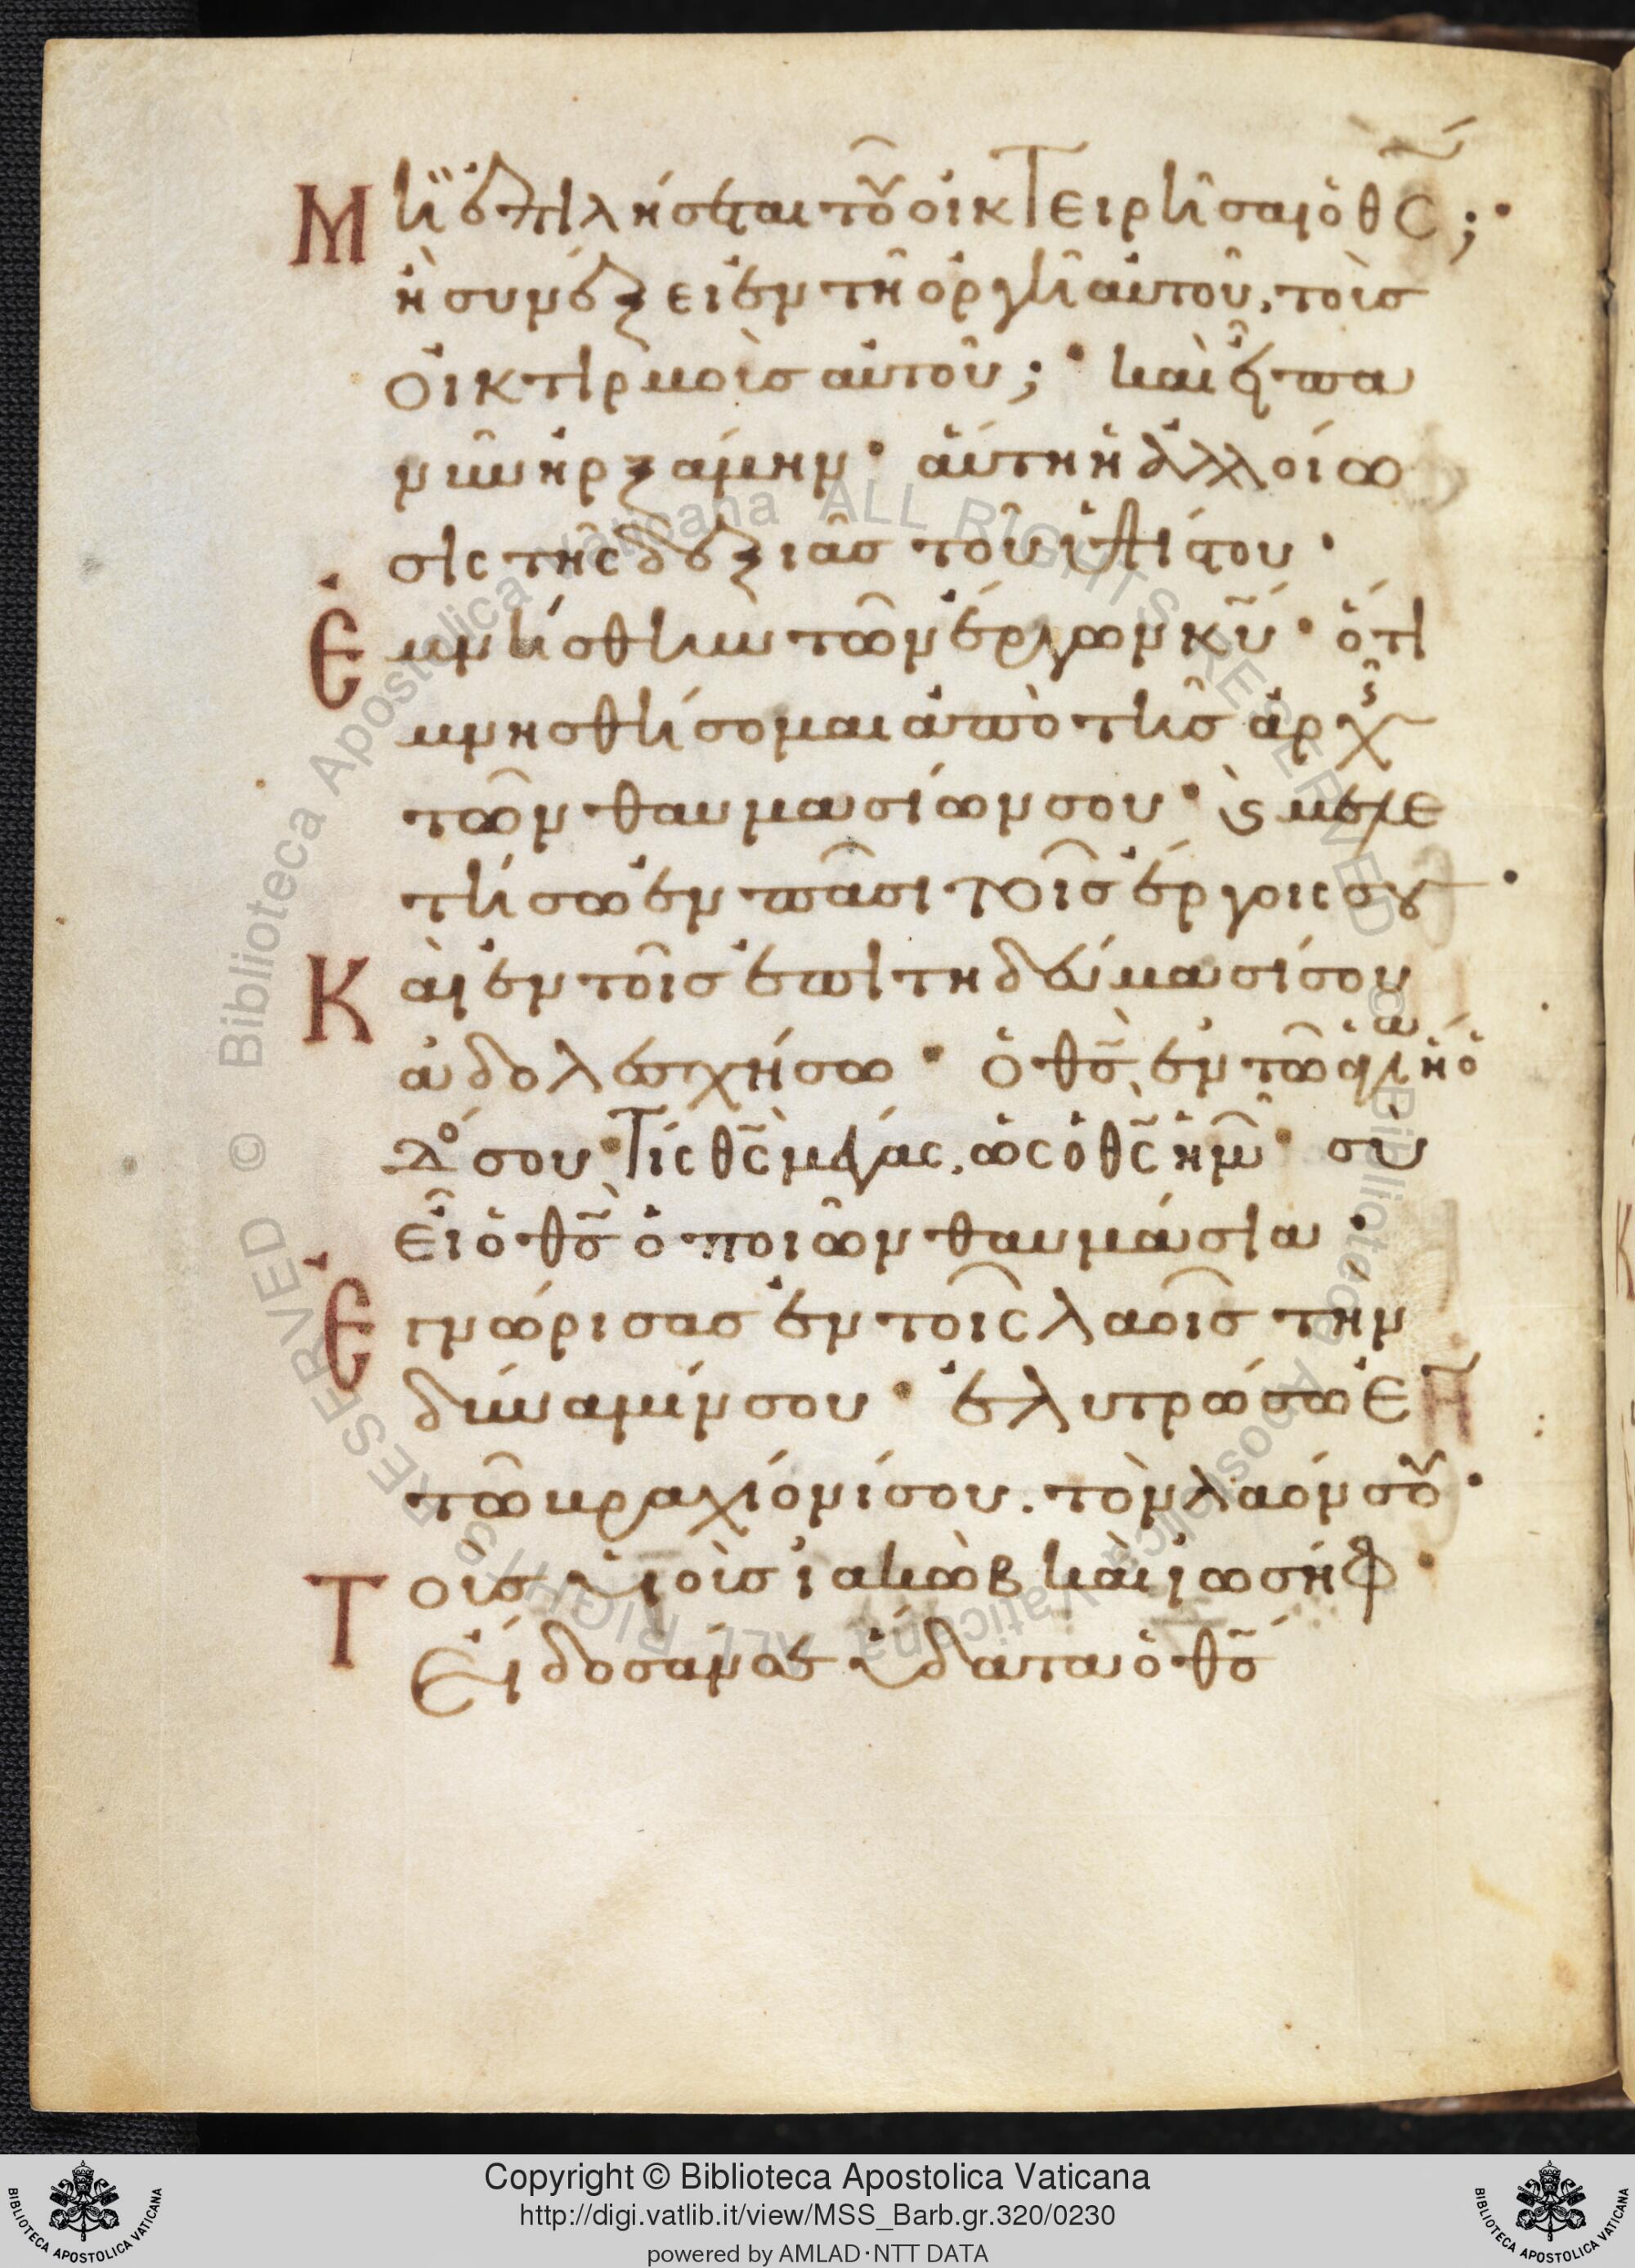 Μὴ ἐπιλήσεται τοῦ οἰκτειρῆσαι ὁ θς̅;·
ἢ συνέξει ἐν τῆ ὀργῆ αὐτοῦ, τοὺς
οἰκτιρμοὺς αὐτοῦ;· καὶ εἶπα
νῦν ἠρξάμην· αὕτη ἡ ἀλλοίω
σις τῆς δεξιᾶς τοῦ ὑψίστου·
Ἐμνήσθην τῶν ἔργων κυ̅· ὅτι
μνησθήσομαι ἀπὸ τῆς ἀρχῆς
τῶν θαυμασίων σου· ϗ μελε
τήσω ἐν πᾶσι τοῖς ἔργοις σου·
Καὶ ἐν τοῖς ἐπιτηδεύμασί σου
ἀδολεσχήσω· ὁ θς̅, ἐν τῶ ἁγίω ἡ ὁ
δό σου· Τίς θς̅ μέγας, ὡς ὁ θς̅ ἡμῶν· σὺ
εἶ ὁ θς̅ ὁ ποιῶν θαυμάσια·
Ἐγνώρισας ἐν τοῖς λαοῖς τὴν
δύναμίν σου· ἐλυτρώσω ἐν
τῶ βραχίονί σου. τὸν λαόν σου·
Τοὺς υἱοὺς ἰακὼβ καὶ ἰωσήφ·
Εἴδοσάν σε ὕδατα ὁ θς̅
Copyright © Biblioteca Apostolica Vaticana
http://digi.vatlib.it/view/MSS_Barb.gr.320/0230
powered by AMLAD·NTT DATA
BIBLIOTECA APOSTOLICA VATICANA
BIBLIOTECA APOSTOLICA VATICANA
© Biblioteca Apostolica Vaticana ALL RIGHTS RESERVED
© Biblioteca Apostolica Vaticana ALL RIGHTS RESERVED